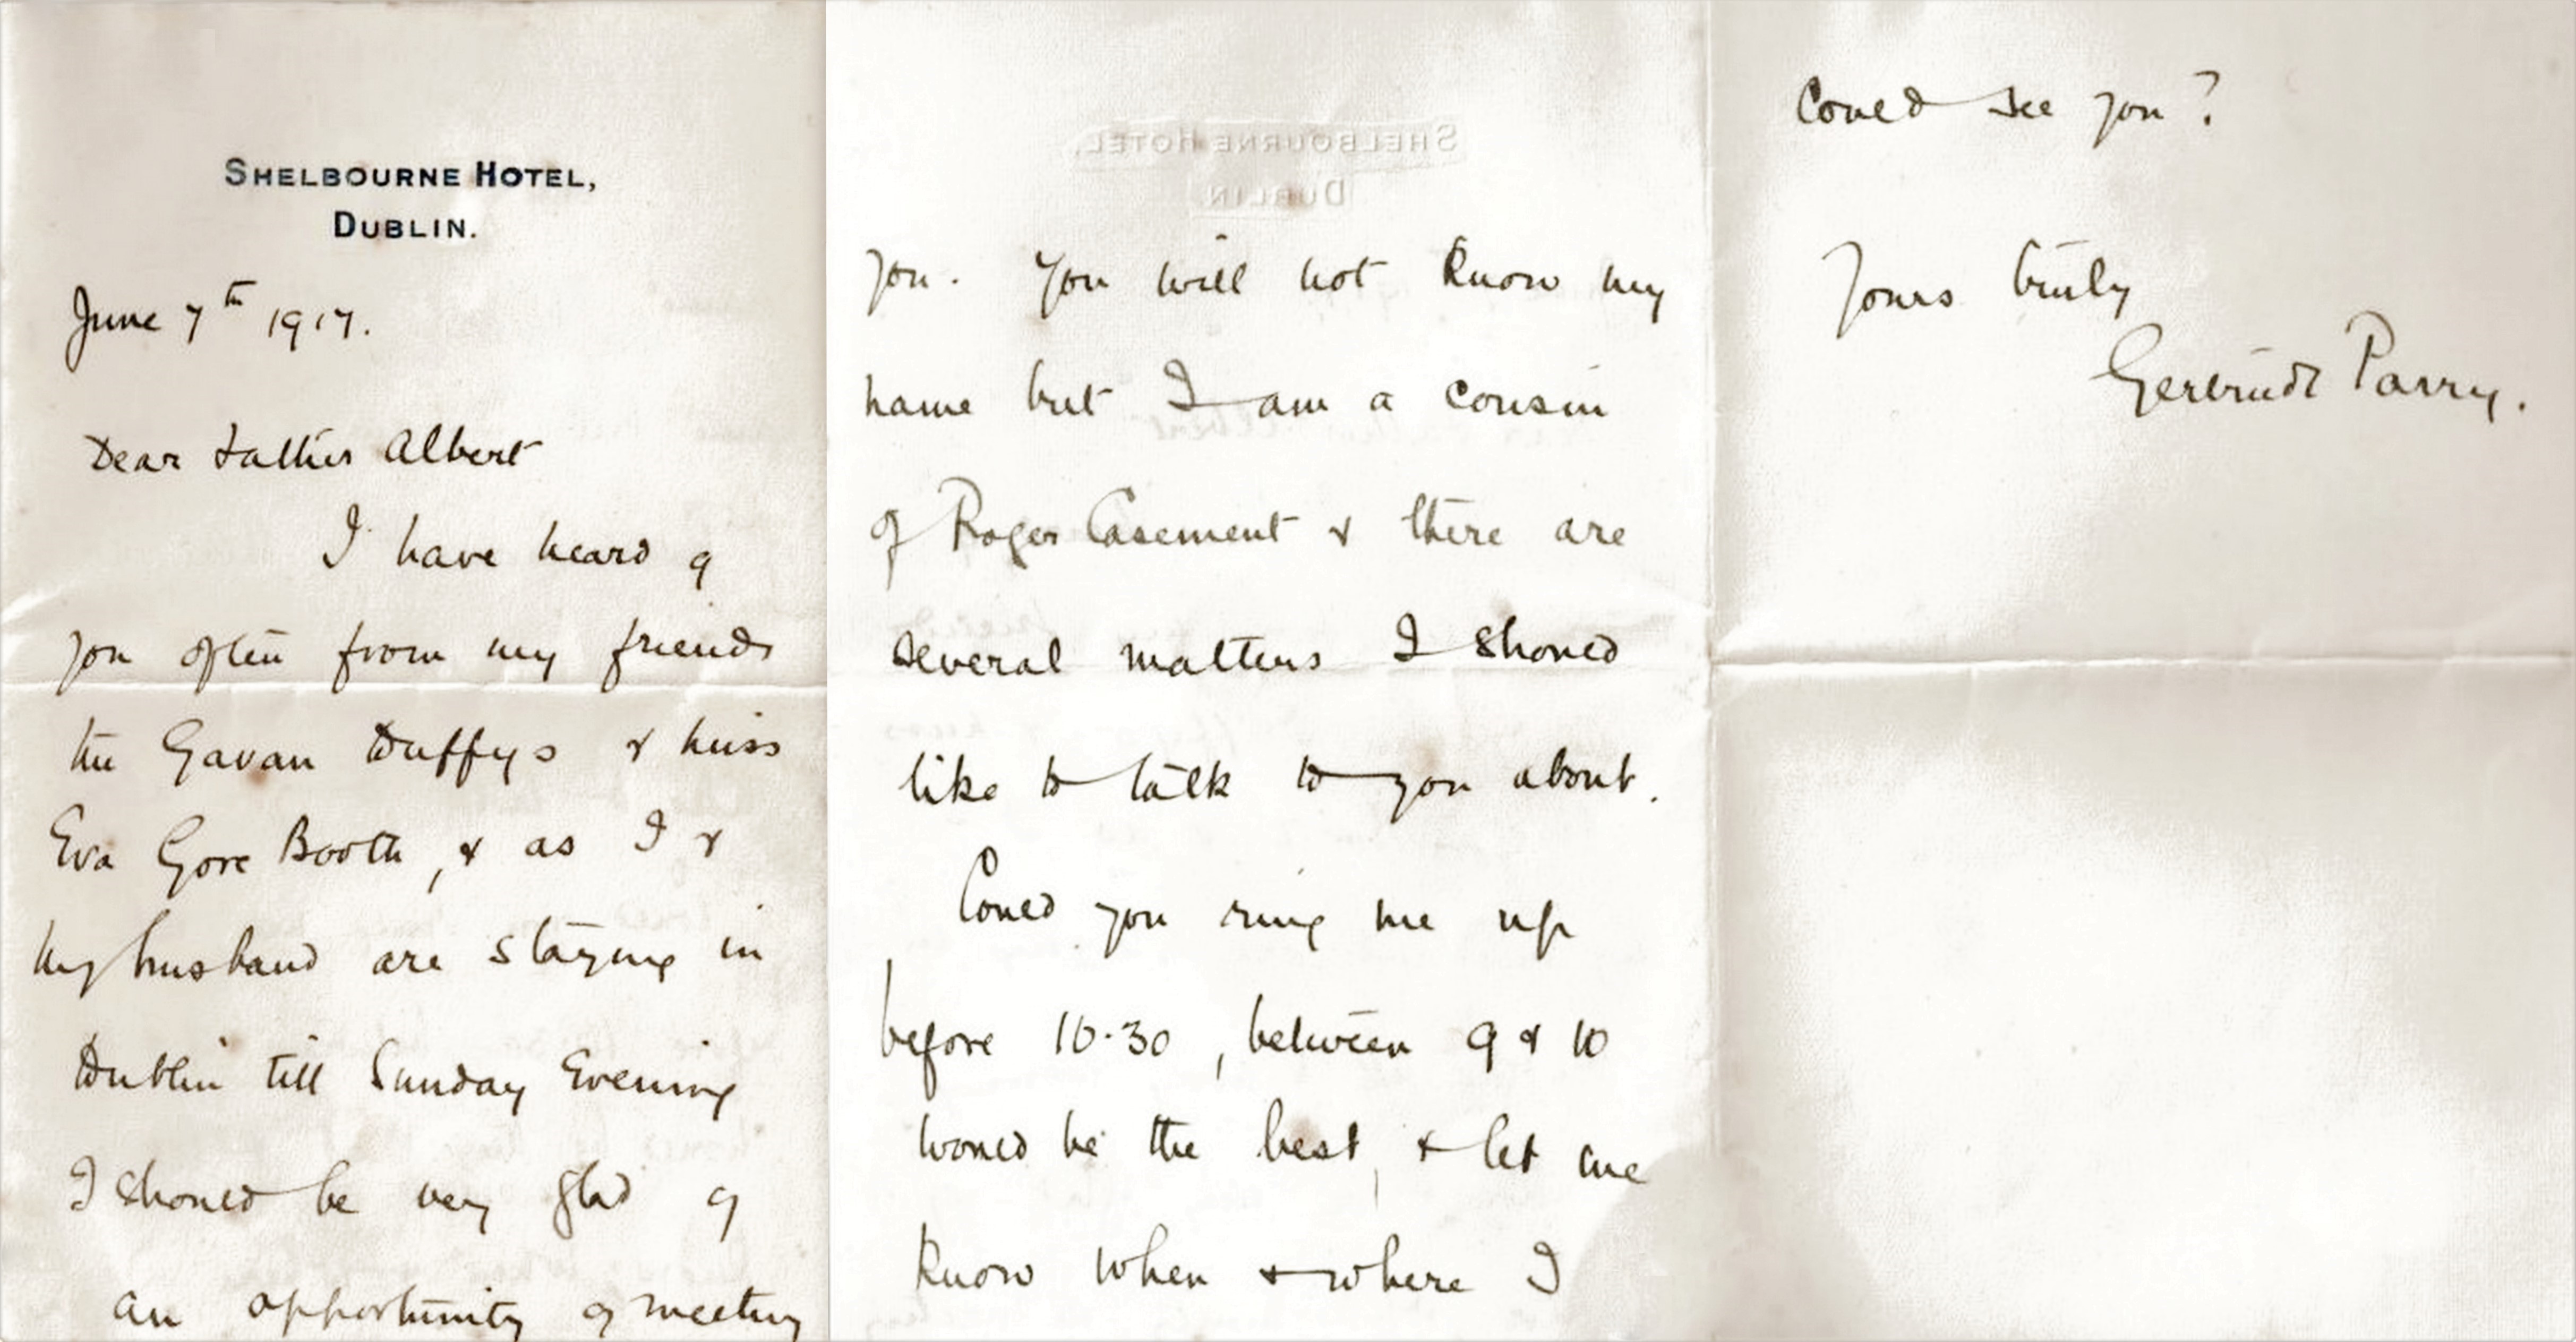 SHELBOURNE HOTEL,
DUBLIN.
June 7th 1917.
Dear Father Albert
I have heard of
you often from my friends
the Gavan Duffys & Miss
Eva Gore Booth, & as I &
my husband are staying in
Dublin till Sunday Evening
I should be very glad of
an opportunity of meeting
SHELBOURNE HOTEL,
DUBLIN.
you. You will not know my
name but I am a cousin
of Roger Casement & there are
several matters I should
like to talk to you about.
Could you ring me up
before 10.30, between 9 & 10
would be the best, & let me
know when & where I
Could see you?
Yours truly
Gertrude Parry.